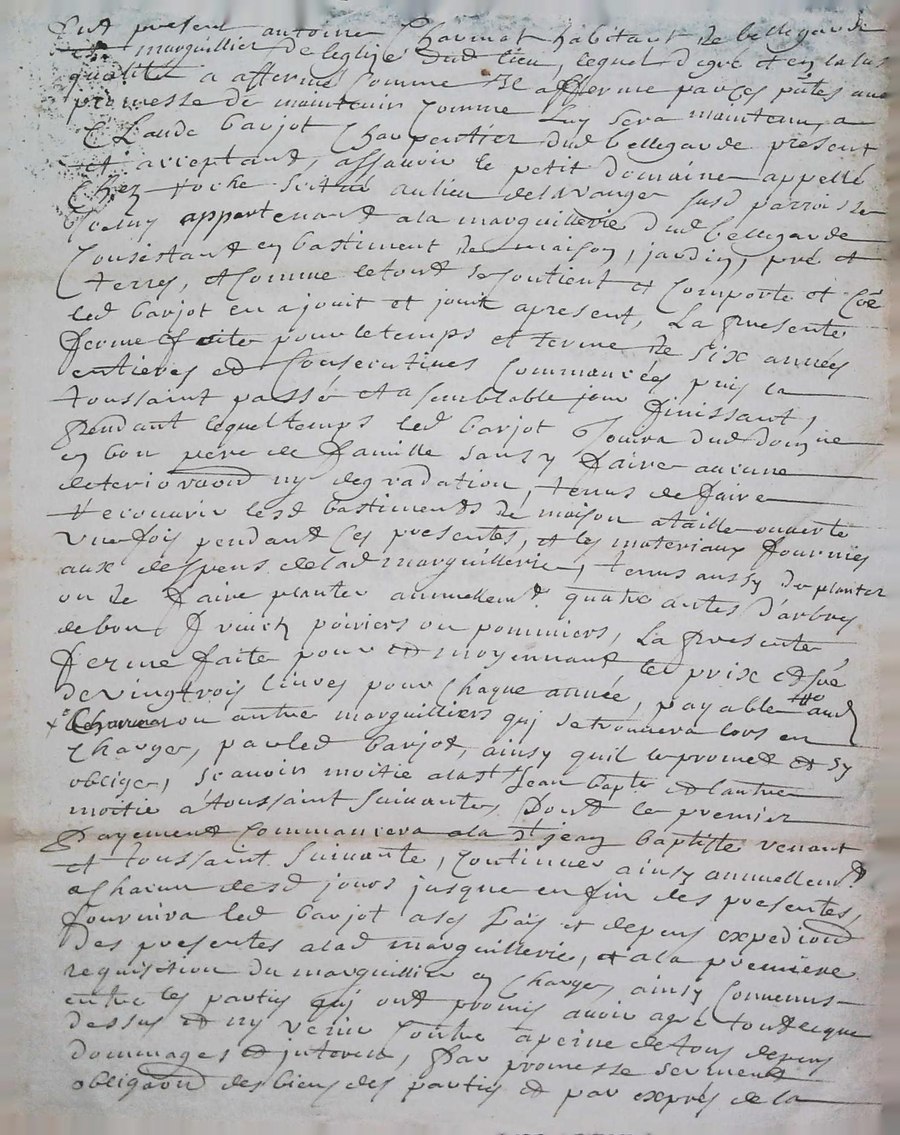 Fut present antoine Charmat habitant de bellegarde
marguillier de leglise dud lieu, lequel degré et en lad
qualité a affermé comme Il afferme par ces pñtes avec
promesse de maintenir comme luy sera maintenu, a
Claude barjot Charpentier dud bellegarde present
et acceptant, assavoir le petit domaine appellé
Chez roche scitué au lieu de susd parroisse
appartenant a la marguillerie dud bellegarde
Consistant en bastiment de maison, jardin, pré et
terres, et comme le tout se contient et comporte et Cõe
led barjot en a jouit et jouit apresent, La presente
ferme faite pour le temps et terme de Six années
entieres et Consecutives Commancées puis la
toussaint passée et a semblable jour finissant,
pendant lequel temps led barjot Jouira dud domaine
en bon pere de famille sans y faire aucune
deterioraõn ny degradation, tenus de faire
recouvrir lesd bastiments de maison a taille ouverte
Une fois pendant ces presentes, et les materiaux fournies
aux despens de lad marguillerie, tenus aussy de planter
ou de faire planter annuellemt quatre antes d'arbres
de bon fruict poiriers ou pommiers, La presente
ferme faite pour et moyennant le prix et sõe
de vingt trois livres pour chaque année, payable aud
Charmat ou autre marguilliers qui se trouvera lors en
Charge, par led barjot, ainsy quil le promet et sy
oblige, scavoir moitié a la st Jean bapte et lautre
moitié a toussaint suivante, Dont le premier
Payement Commancera a la st jean baptiste venant
et toussaint suivante, continuer ainsy annuellemt
a chacun desd jours jusque en fin des presentes,
fournira led barjot a ses frais et depens expediõn
des presentes a lad marguillerie, et a la premiere
requisition du marguillier en Charge, ainsy Convenus
entre les parties qui ont promis avoir agré tout ce que
dessus et ny venir contre a peine de tous depens
dommages et interests, par promesse serment
obligaõn des biens des parties et par exprés de la